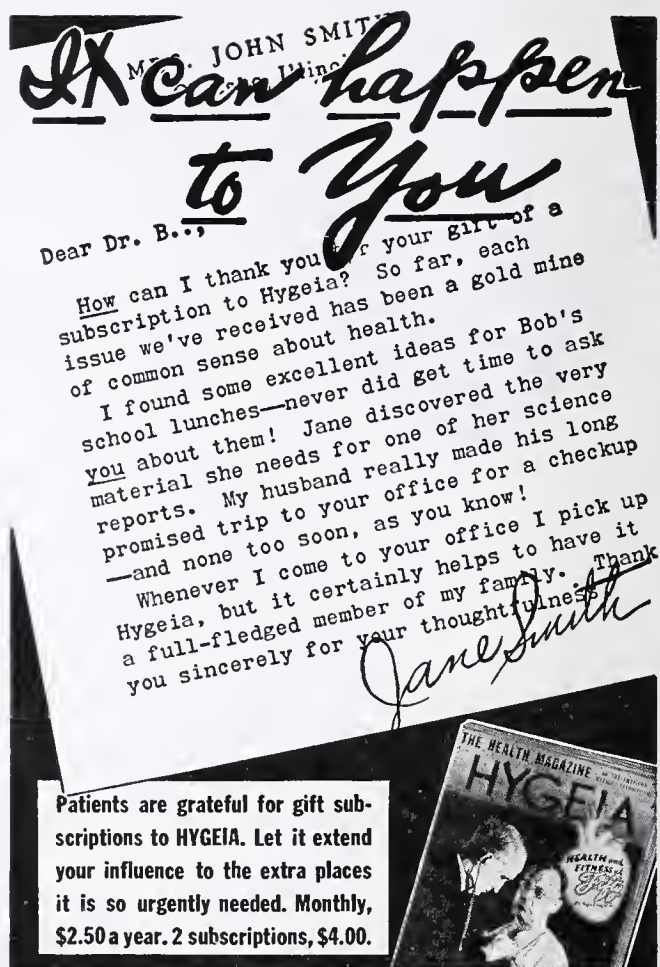 MRS. JOHN SMITH
It can happen
to You
Dear Dr. B..,
How can I thank you your gift of a
subscription to Hygeia? So far, each
issue we've received has been a gold mine
of common sense about health.
I found some excellent ideas for Bob's
school lunches—never did get time to ask
you about them! Jane discovered the very
material she needs for one of her science
reports. My husband really made his long
promised trip to your office for a checkup
—and none too soon, as you know!
Whenever I come to your office I pick up
Hygeia, but it certainly helps to have it
a full-fledged member of my family. Thank
you sincerely for your thoughtfulness
Jane Smith
THE HEALTH MAGAZINE
HYGEIA
HEALTH and
FITNESS
Patients are grateful for gift sub-
scriptions to HYGEIA. Let it extend
your influence to the extra places
it is so urgently needed. Monthly,
$2.50 a year. 2 subscriptions, $4.00.